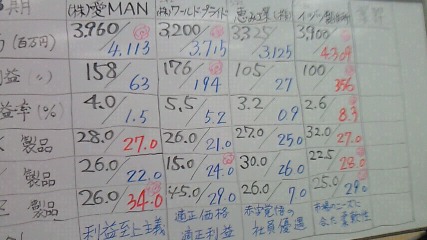 期 (株)愛MAN (株)ワールドプライド 恵み工業(株)
(百万円) 3960/4.113 3200/3.715 3325/3.125 3,900/4309
利益(〃) 158/63 176/194 105/27 100/356
益率(%) 4.0/1.5 5.5/5.2 3.2/0.9 2.6/8.3
製品 28.0/27.0 26.0/21.0 27.0/25.0 32.0/27.0
製品 26.0/22.0 15.0/24.0 30.0/26.0 22.5/28.0
製品 26.0/34.0 45.0/29.0 26.0/7.0 25.0/29.0
利益至上主義 適正価格 赤字覚悟の 市場のニーズに
適正利益 社員優遇 柔軟性